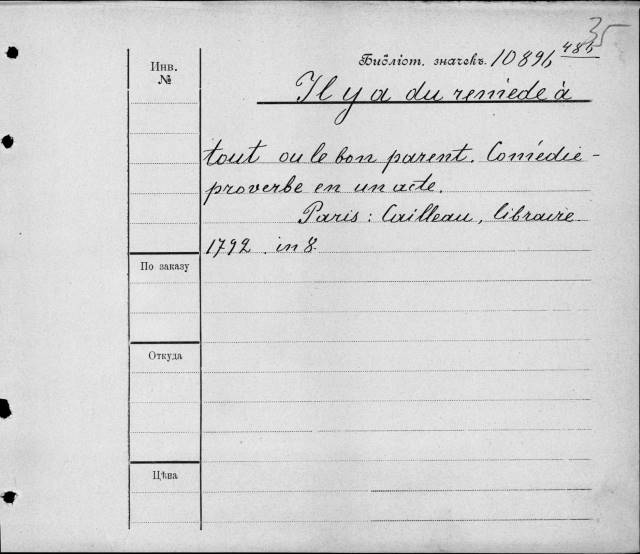 35
Инв.
№
Библіот. значекъ. 10896 486
Il y a du remède à
tout ou le bon parent. Comédie-
proverbe en un acte.
Paris: Cailleau, libraire.
1792. in 8.
По заказу
Откуда
Цѣна